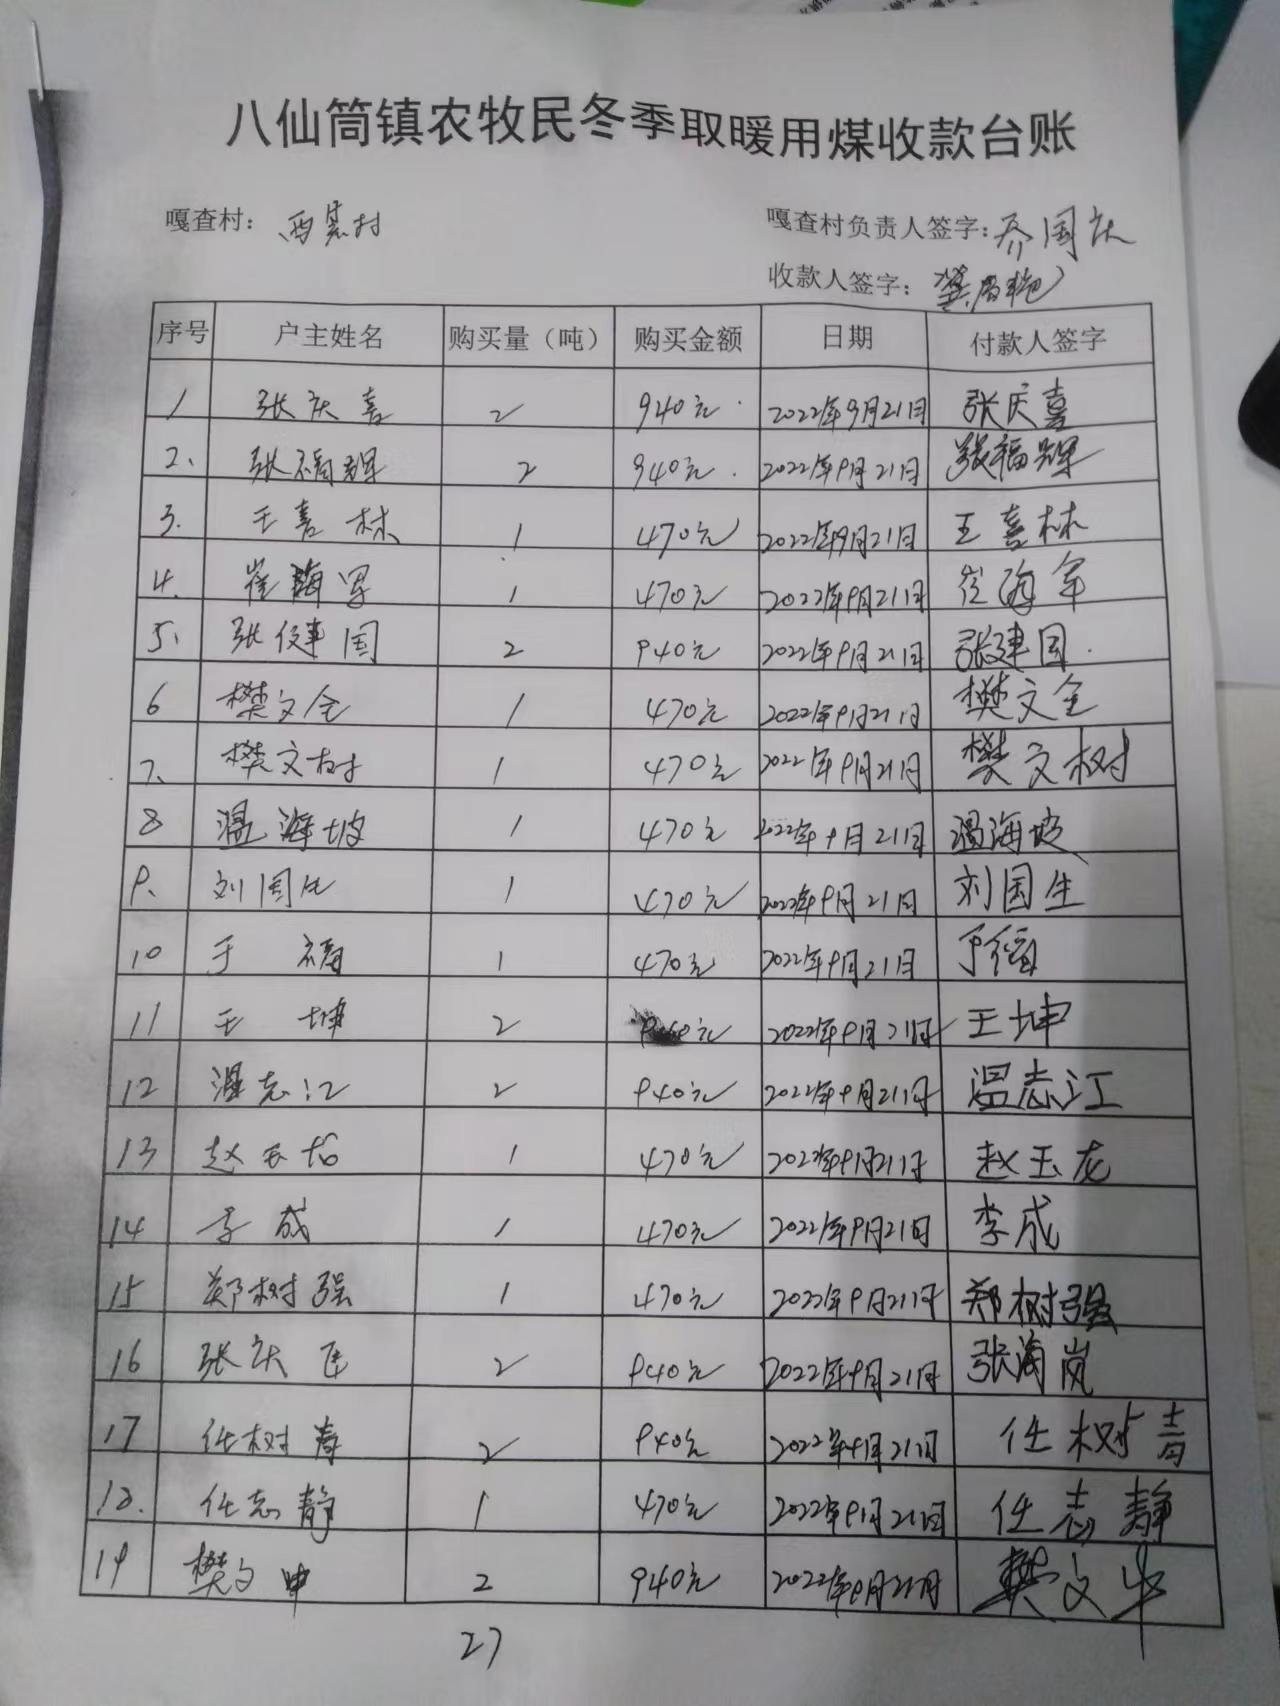 八仙筒镇农牧民冬季取暖用煤收款台账
嘎查村: 西寨村 嘎查村负责人签字: 乔国庆
收款人签字:
序号 户主姓名 购买量（吨） 购买金额 日期 付款人签字
1 张庆喜 2 940元 2022年9月21日 张庆喜
2、 张福辉 2 940元 2022年9月21日 张福辉
3. 王喜林 1 470元 2022年9月21日 王喜林
4. 崔海军 1 470元 2022年9月21日 崔海军
5、 张建国 2 940元 2022年9月21日 张建国
6 樊文全 1 470元 2022年9月21日 樊文全
7、 樊文树 1 470元 2022年9月21日 樊文树
8 温海坡 1 470元 2022年9月21日 温海坡
9、 刘国生 1 470元 2022年9月21日 刘国生
10 于福 1 470元 2022年9月21日 于福
11 王坤 2 940元 2022年9月21日 王坤
12 温志江 2 940元 2022年9月21日 温志江
13 赵玉龙 1 470元 2022年9月21日 赵玉龙
14 李成 1 470元 2022年9月21日 李成
15 郑树强 1 470元 2022年9月21日 郑树强
16 张庆 2 940元 2022年9月21日 张海岚
17 任树青 2 940元 2022年9月21日 任树青
18. 任志静 1 470元 2022年9月21日 任志静
19 樊文申 2 940元 2022年9月21日 樊文华
27